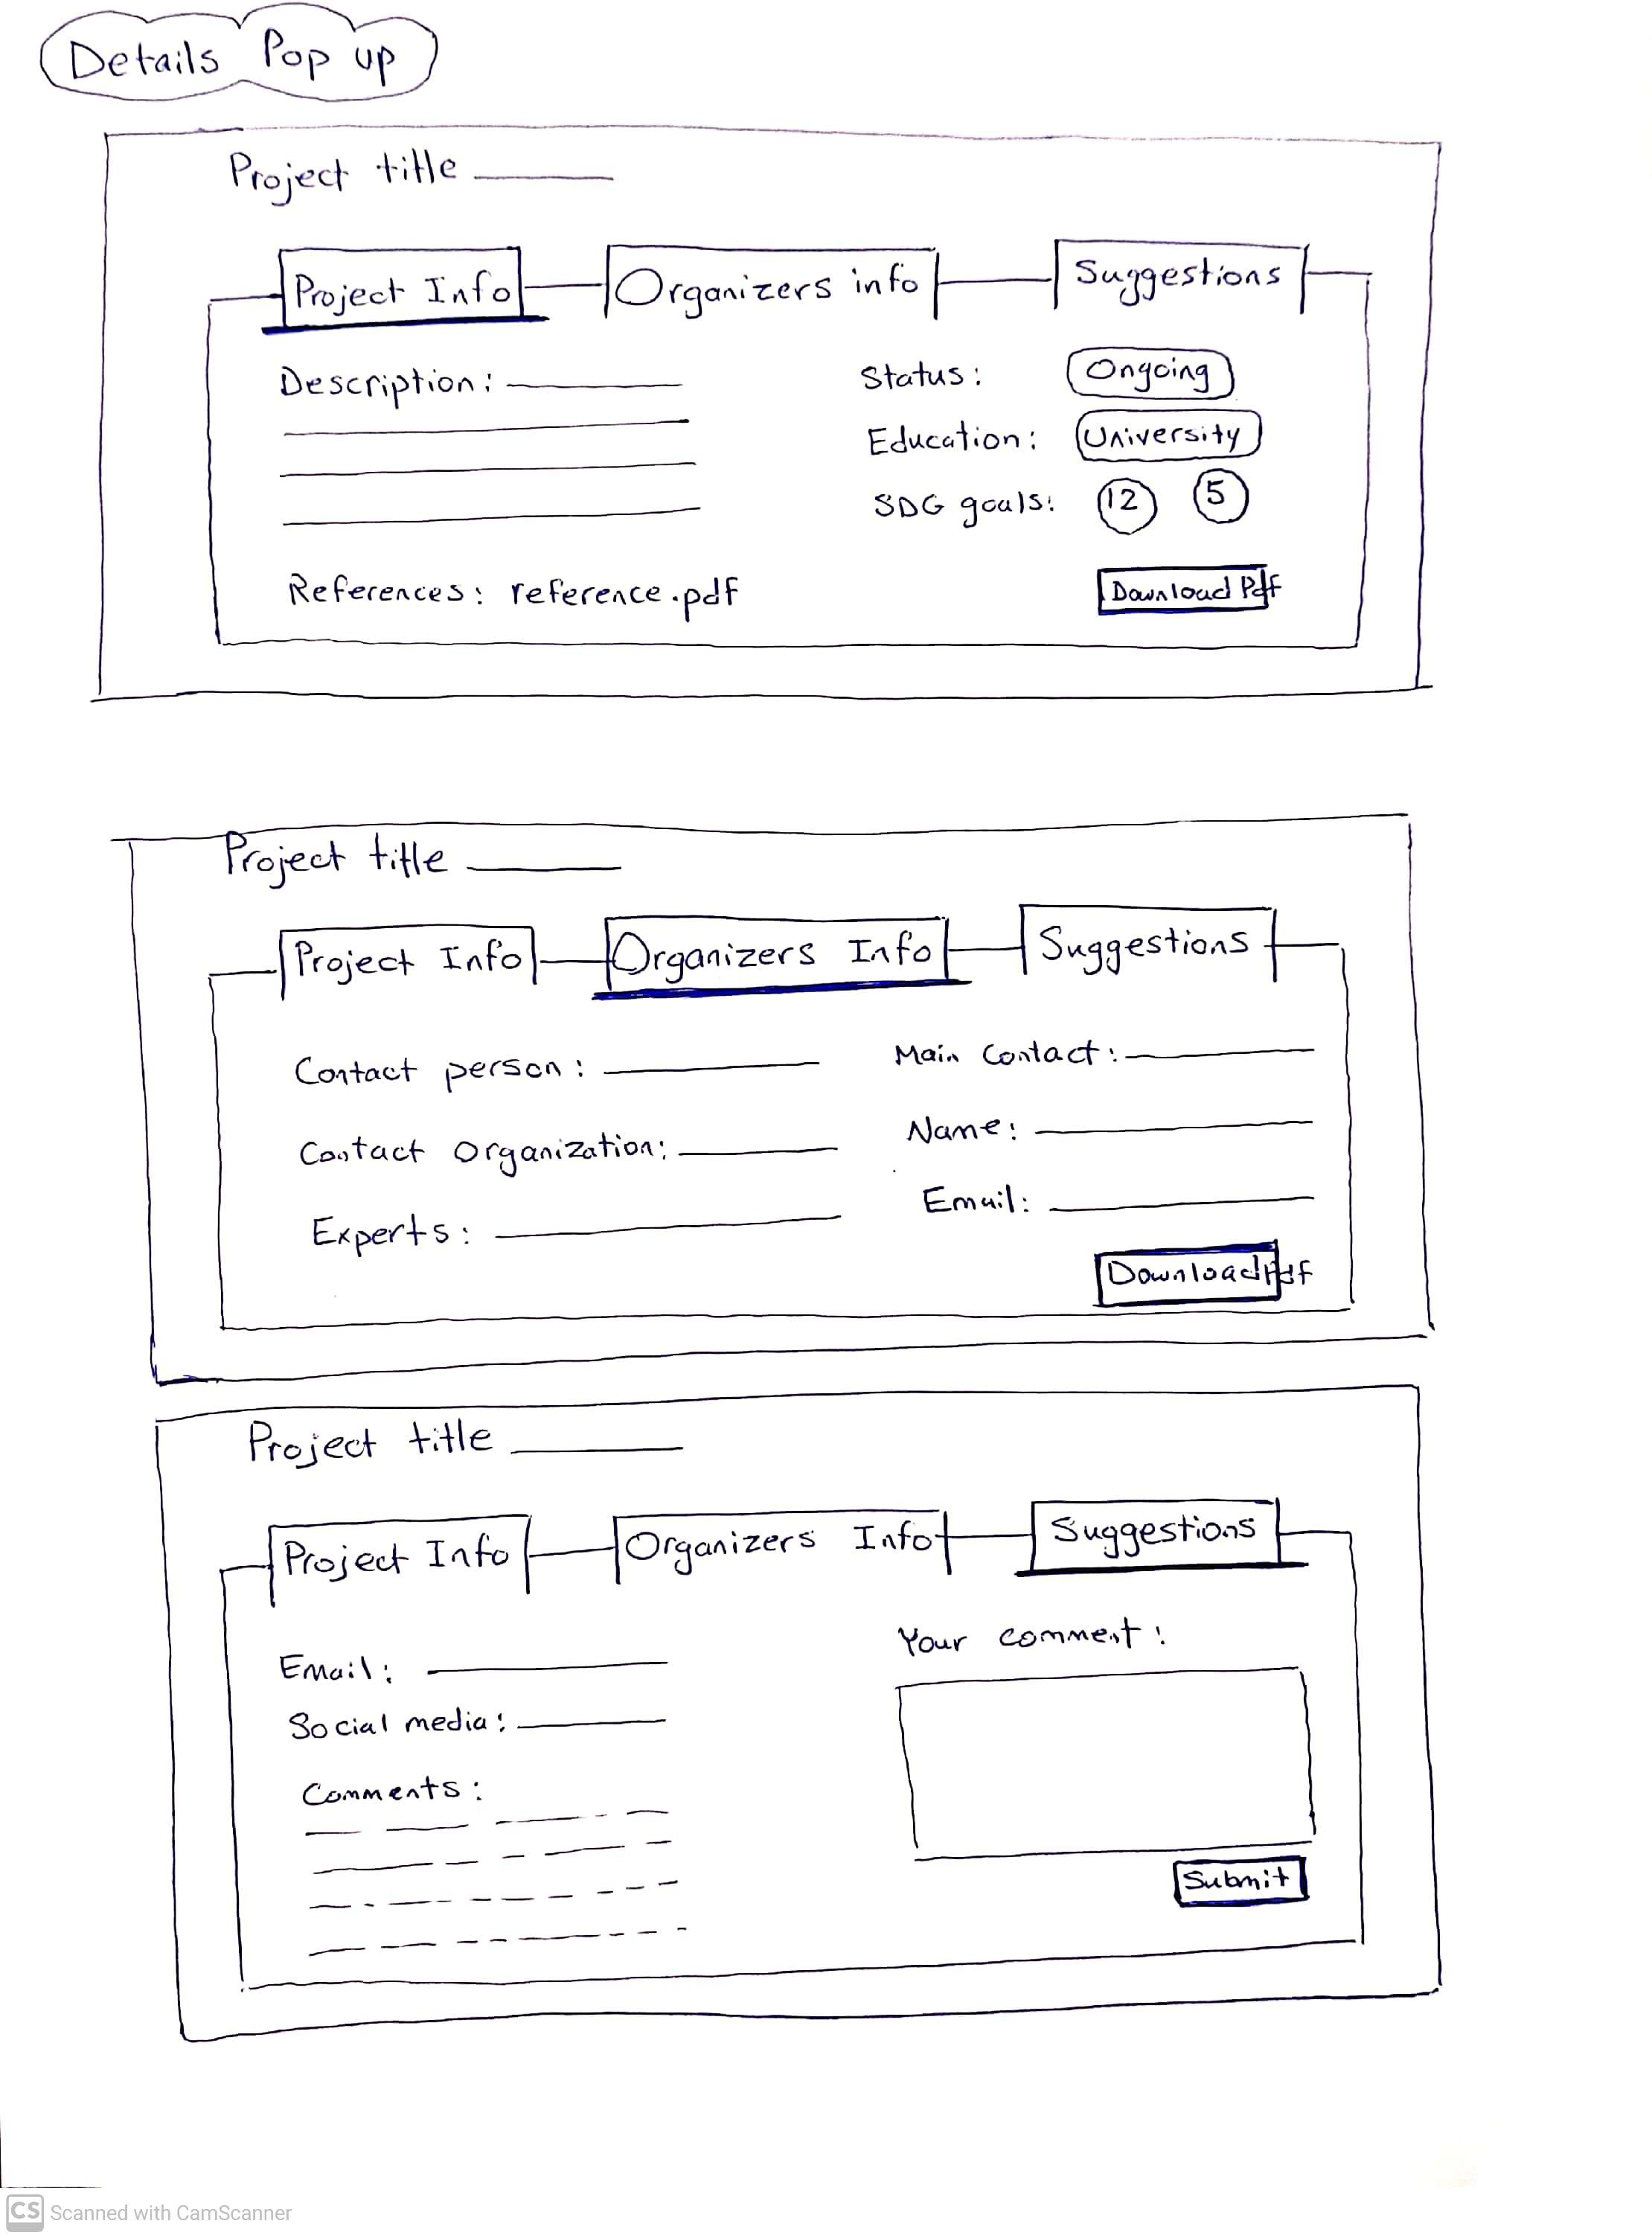 Details Pop up
Project title
Project Info Organizers info Suggestions
Description: Status: Ongoing
Education: University
SDG goals: 12 5
References: reference.pdf Download Pdf
Project title
Project Info Organizers Info Suggestions
Contact person: Main Contact:
Contact Organization: Name:
Experts: Email:
Download Pdf
Project title
Project Info Organizers Info Suggestions
Email: Your comment:
Social media:
Comments:
Submit
CS Scanned with CamScanner